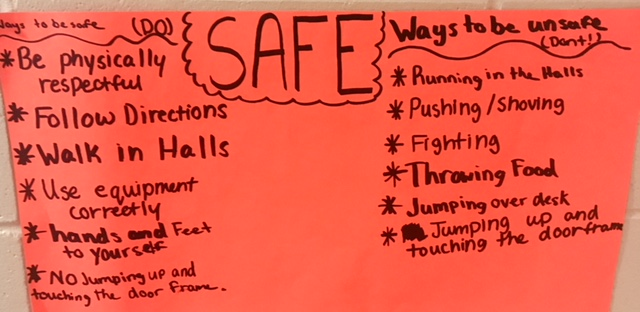 Ways to be safe (DO)
*Be physically
respectful
*Follow Directions
*Walk in Halls
*Use equipment
correctly
*hands and Feet
to yourself
*No Jumping up and
touching the door frame.
SAFE
Ways to be unsafe
(Dont!)
*Running in the Halls
*Pushing/Shoving
*Fighting
*Throwing Food
*Jumping over desk
*Jumping up and
touching the doorframe